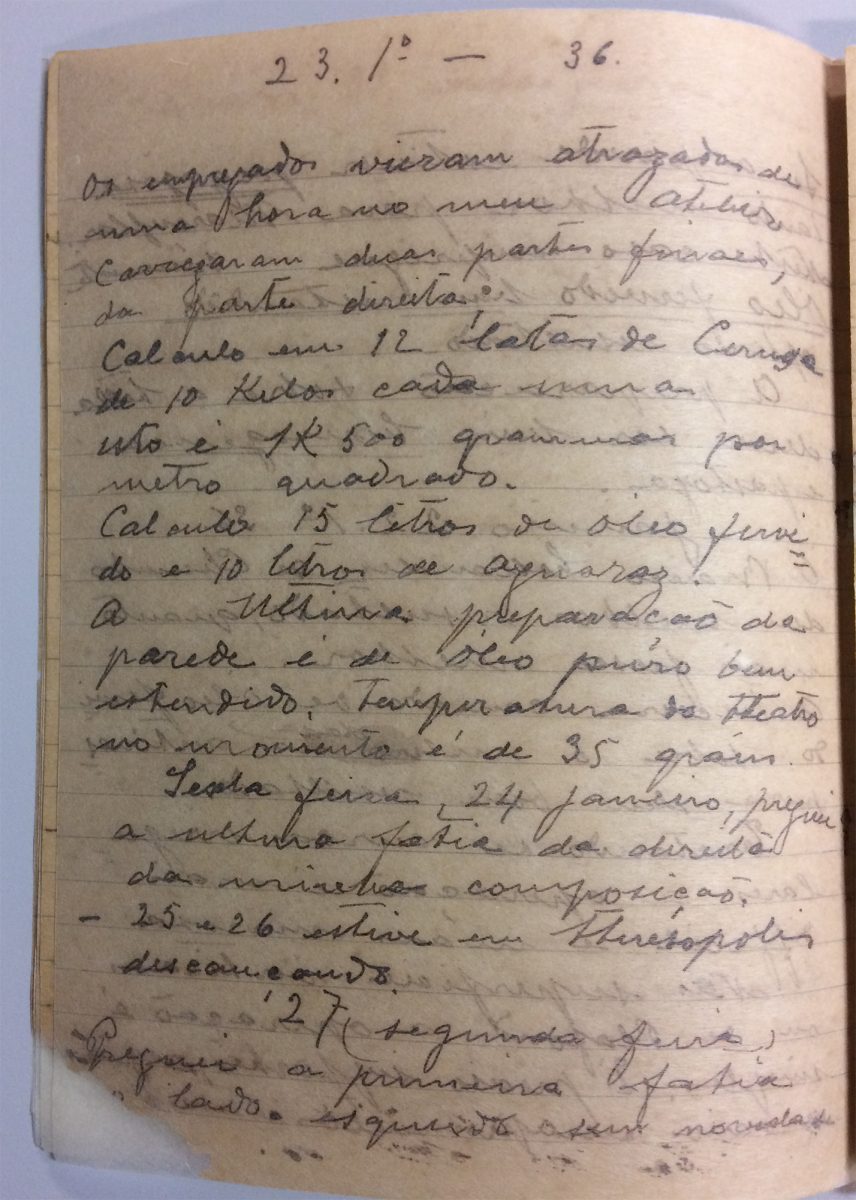 23. 1º — 36.
Os empregados vieram atrazados de
uma hora no meu atelier
Carregaram duas partes finaes,
da parte direita;
Calculo em 12 latas de Ceruza
de 10 Kilos cada uma
isto é 1K 500 grammas por
metro quadrado.
Calculo 15 litros de óleo fervi
do e 10 litros de aguaraz.
A Ultima preparação da
parede é de Óleo puro bem
estendido. Temperatura do Theatro
no momento é de 35 gráus.
Sexta feira, 24 janeiro, preguei
a ultima fatia da direita
da minha composição.
- 25 e 26 estive em Therésopolis
descançando.
27 (segunda feira)
Preguei a primeira fatia
lado esquerdo sem novidade